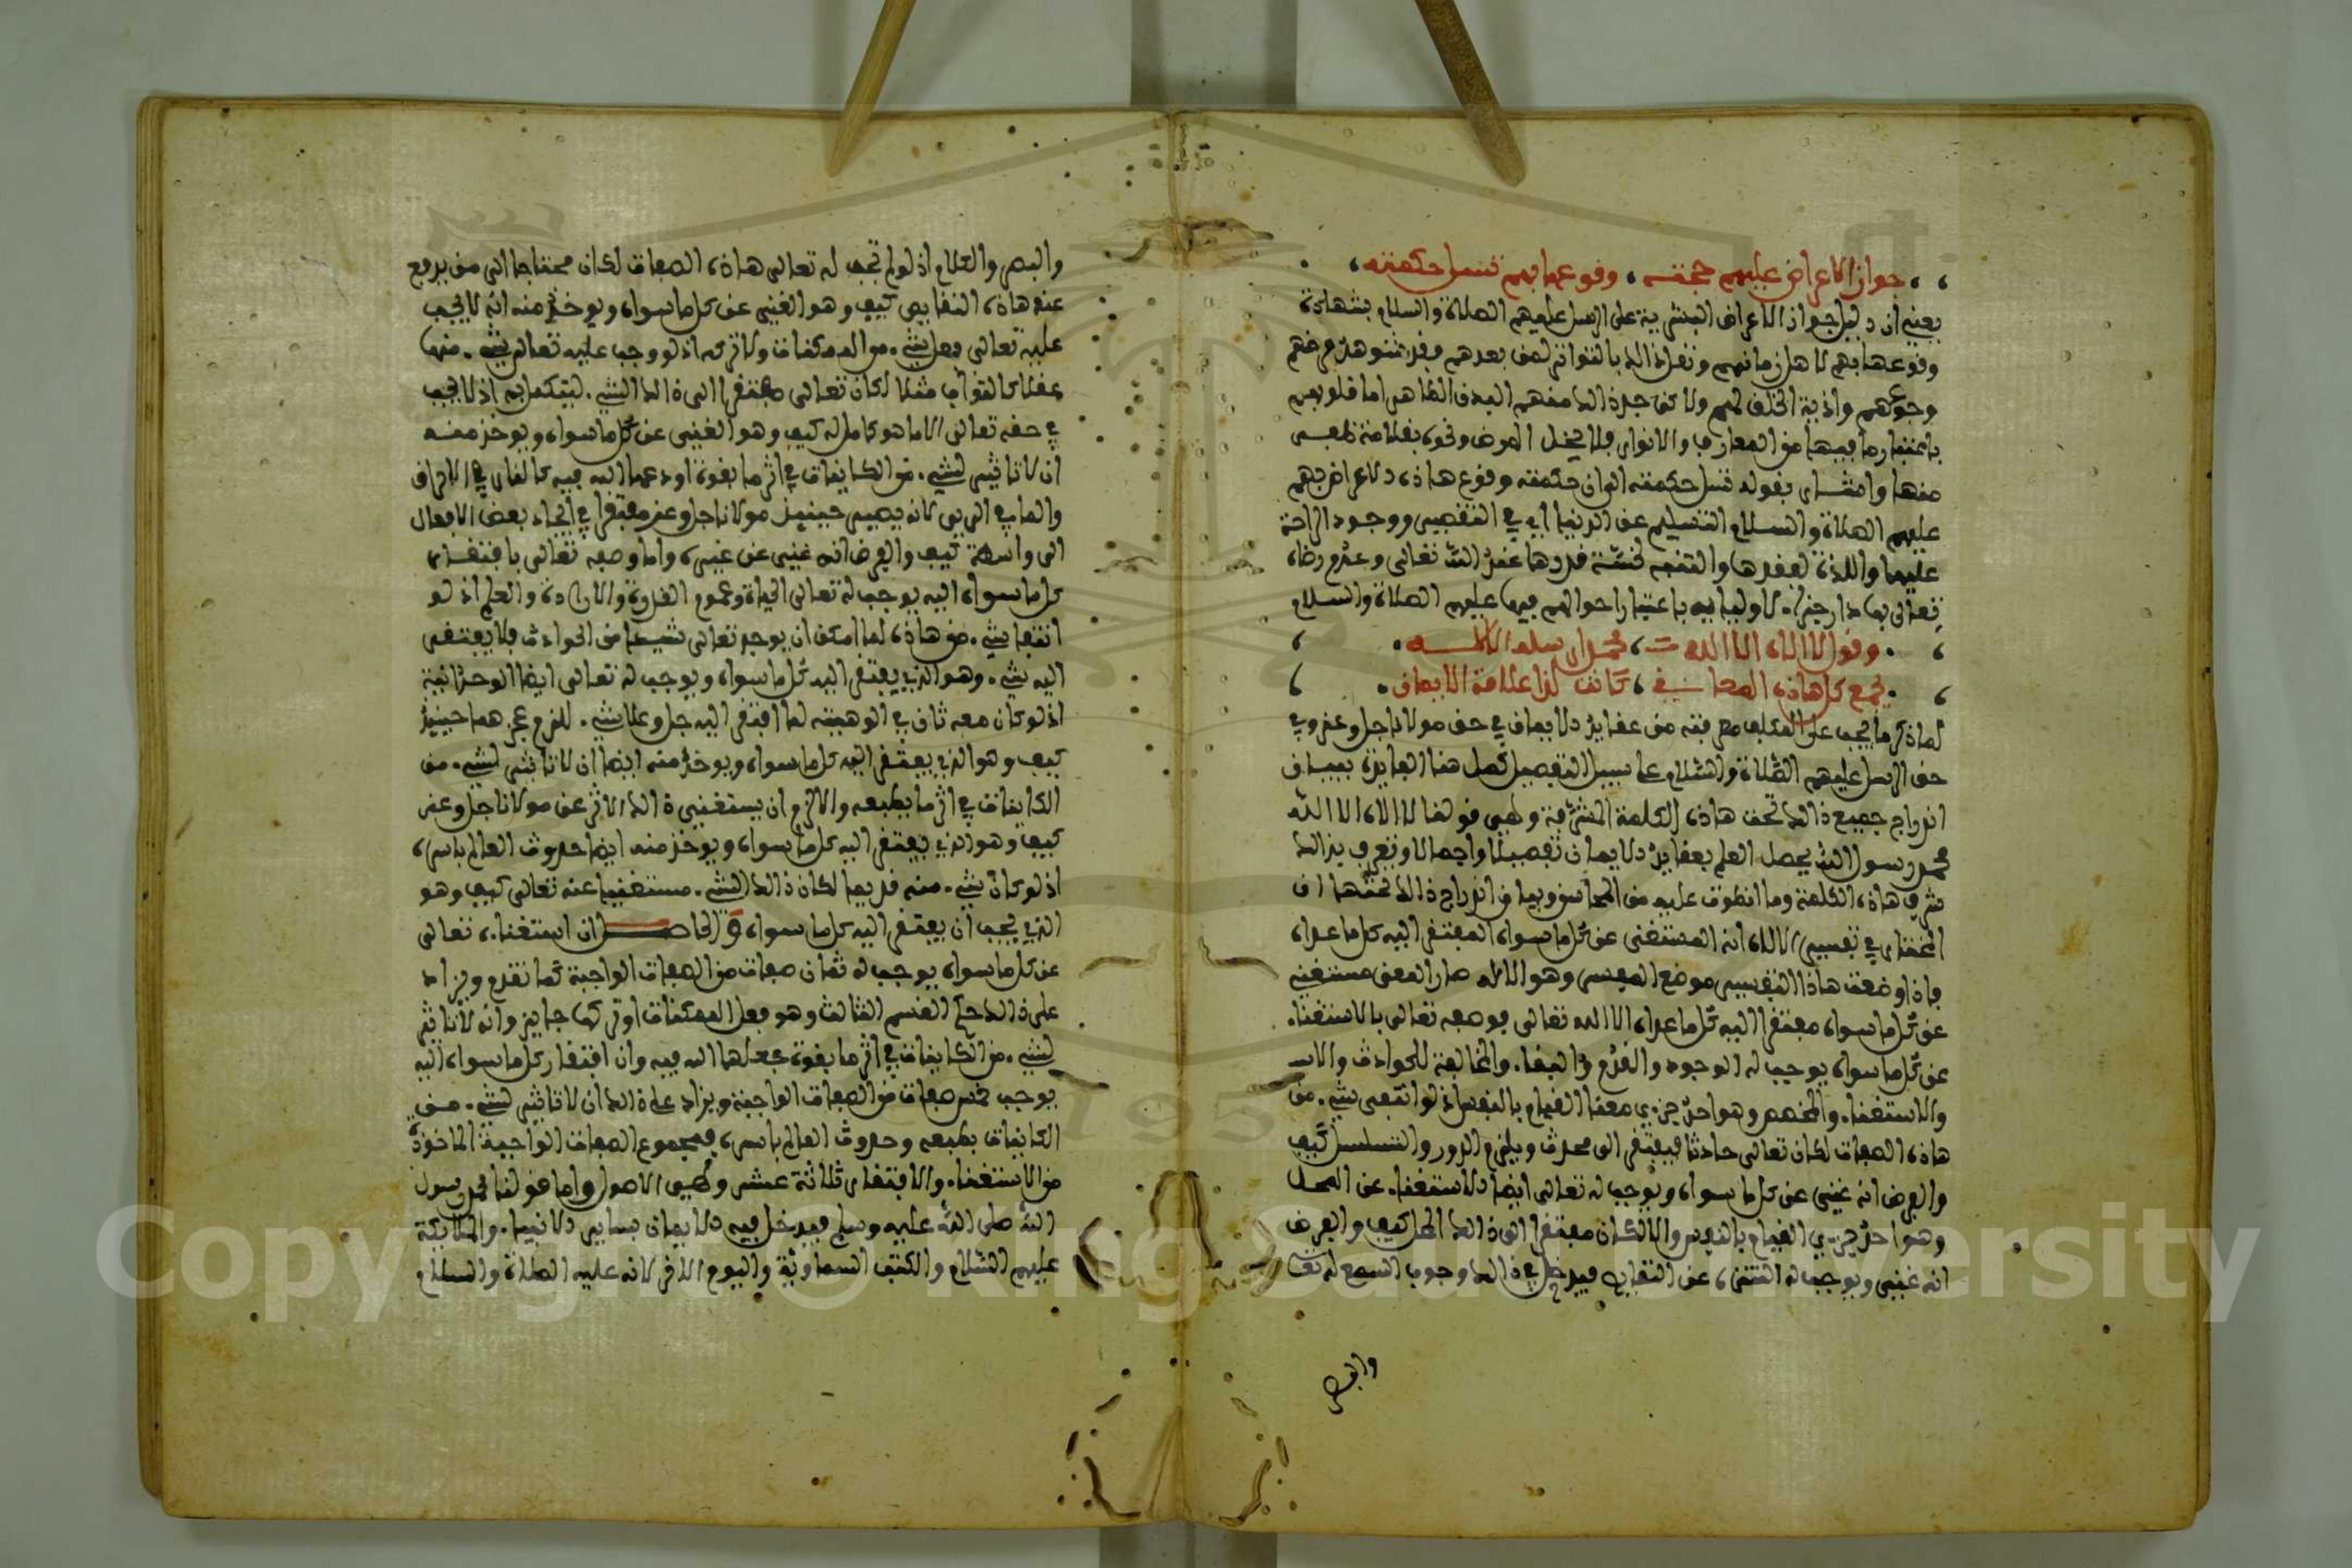 جواز الاعراض عليهم حجته، وقوعها بهم تسل حكمته،
يعني ان دليل جواز الاعراض البشرية على الرسل عليهم الصلاة والسلام بشهادة
وقوعها بهم لاهل زمانهم ونقل ذالك بالتواتر لمن بعدهم وقد شوهد مرضهم
وجوعهم واذية الخلق لهم ولاكن حد ذالك منهم البدن الظاهر اما قلوبهم
باعتبار ما فيها من المعارف والانوار فلا يخل المرض ونحوه بقلامة ظفر
منها واشار بقوله تسل حكمته الى ان حكمته وقوع هاذه الاعراض بهم
عليهم الصلاة والسلام التسلي عن الدنيا اي التصبر ووجود الراحة
عليها واللذة لفقدها والتنبه لخسة قدرها عند الله تعالى وعدم رضاه
تعالى بها دار جزاء لاوليايه باعتبار احوالهم فيها عليهم الصلاة والسلام
وقول لا اله الا الله، محمد ارسله الاله
يجمع كل هاذه المعاني، كانت لذا علامة الايمان
لما ذكر ما يجب على المكلف معرفته من عقايد الايمان في حق مولانا جل وعز وفي
حق الرسل عليهم الصلاة والسلام على سبيل التفصيل كمل هنا الفايدة ببيان
اندراج جميع ذالك تحت هاذه الكلمة المشرفة وهي قولنا لا اله الا الله
محمد رسول الله يحصل العلم بعقايد الايمان تفصيلا واجمالا وتعرف بذالك
شرف هاذه الكلمة وما انطوت عليه من المحاسن وبيان اندراج ذالك تحتها ان
المختار في تفسير الاله انه المستغنى عن كل ما سواه المفتقر اليه كل ما عداه
فاذا وضعت هاذا التفسير موضع المفسر وهو الاله صار المعنى مستغني
عن كل ما سواه مفتقرا اليه كل ما عداه الا الله تعالى فوصفه تعالى بالاستغناء
عن كل ما سواه يوجب له الوجود والقدم والبقاء والمخالفة للحوادث والاس
والاستغناء والمخصص وهو احد جزءي معنا القيام بالنفس اذ لو انتفى شيء من
هاذه الصفات لكان تعالى حادثا فيفتقر الى محدث ويلزم الدور والتسلسل كيف
والفرض انه غني عن كل ما سواه ويوجب له تعالى ايضا الاستغناء عن المحل
وهو احد جزءي القيام بالنفس والا لكان مفتقرا الى ذالك المحل كيف والفرض
انه غني ويوجب له التنزه عن النقايص فيدخل في ذالك وجوب السمع له تعالى
والبصر
والبصر والكلام اذ لو لم تجب له تعالى هاذه الصفات لكان محتاجا الى من يدفع
عنه هاذه النقايص كيف وهو الغني عن كل ما سواه ويوخذ منه انه لا يجب
عليه تعالى فعل شيء من الممكنات ولا تركه اذ لو وجب عليه تعالى شيء منها
عقلا كالثواب مثلا لكان تعالى مفتقرا الى ذالك الشيء ليتكمل به اذ لا يجب
في حقه تعالى الا ما هو كامل له كيف وهو الغني عن كل ما سواه ويوخذ منه
ان لا تاثير لشيء من الكاينات في اثر ما بقوة اودعها الله فيه كالنار في الاحراق
والماء في الري لانه يصير حينيذ مولانا جل وعز مفتقرا في ايجاد بعض الافعال
الى واسطة كيف والفرض انه غني عن غيره واما وصفه تعالى بافتقار
كل ما سواه اليه يوجب له تعالى الحياة وعموم القدرة والارادة والعلم اذ لو
انتفا شيء من هاذه لما امكن ان يوجد تعالى شيئا من الحوادث فلا يفتقر
اليه شيء وهو الذي يفتقر اليه كل ما سواه ويوجب له تعالى ايضا الوحدانية
اذ لو كان معه ثان في الوهيته لما افتقر اليه جل وعلا شيء للزوم عجزهما حينيذ
كيف وهو الذي يفتقر اليه كل ما سواه ويوخذ منه ايضا ان لا تاثير لشيء من
الكاينات في اثر ما بطبعه والا لزم ان يستغني ذالك الاثر عن مولانا جل وعز
كيف وهو الذي يفتقر اليه كل ما سواه ويوخذ منه ايضا حدوث العالم باسره
اذ لو كان شيء منه قديما لكان ذالك الشيء مستغنيا عنه تعالى كيف وهو
الذي يجب ان يفتقر اليه كل ما سواه والحاصل ان استغناءه تعالى
عن كل ما سواه يوجب له ثمان صفات من الصفات الواجبة كما تقدم ويزاد
على ذالك حكم القسم الثالث وهو فعل الممكنات او تركها جايز وانه لا تاثير
لشيء من الكاينات في اثر ما بقوة جعلها الله فيه وان افتقار كل ما سواه اليه
يوجب خمس صفات من الصفات الواجبة ويزاد على ذالك ان لا تاثير لشيء من
الكاينات بطبعه وحدوث العالم باسره فمجموع الصفات الواجبة الماخوذة
من الاستغناء والافتقار ثلاثة عشر وهي الاصول واما قولنا محمد رسول
الله صلى الله عليه وسلم فيدخل فيه الايمان بساير الانبياء والملايكة
عليهم السلام والكتب السماوية واليوم الاخر لانه عليه الصلاة والسلام
Copyright © King Saud University